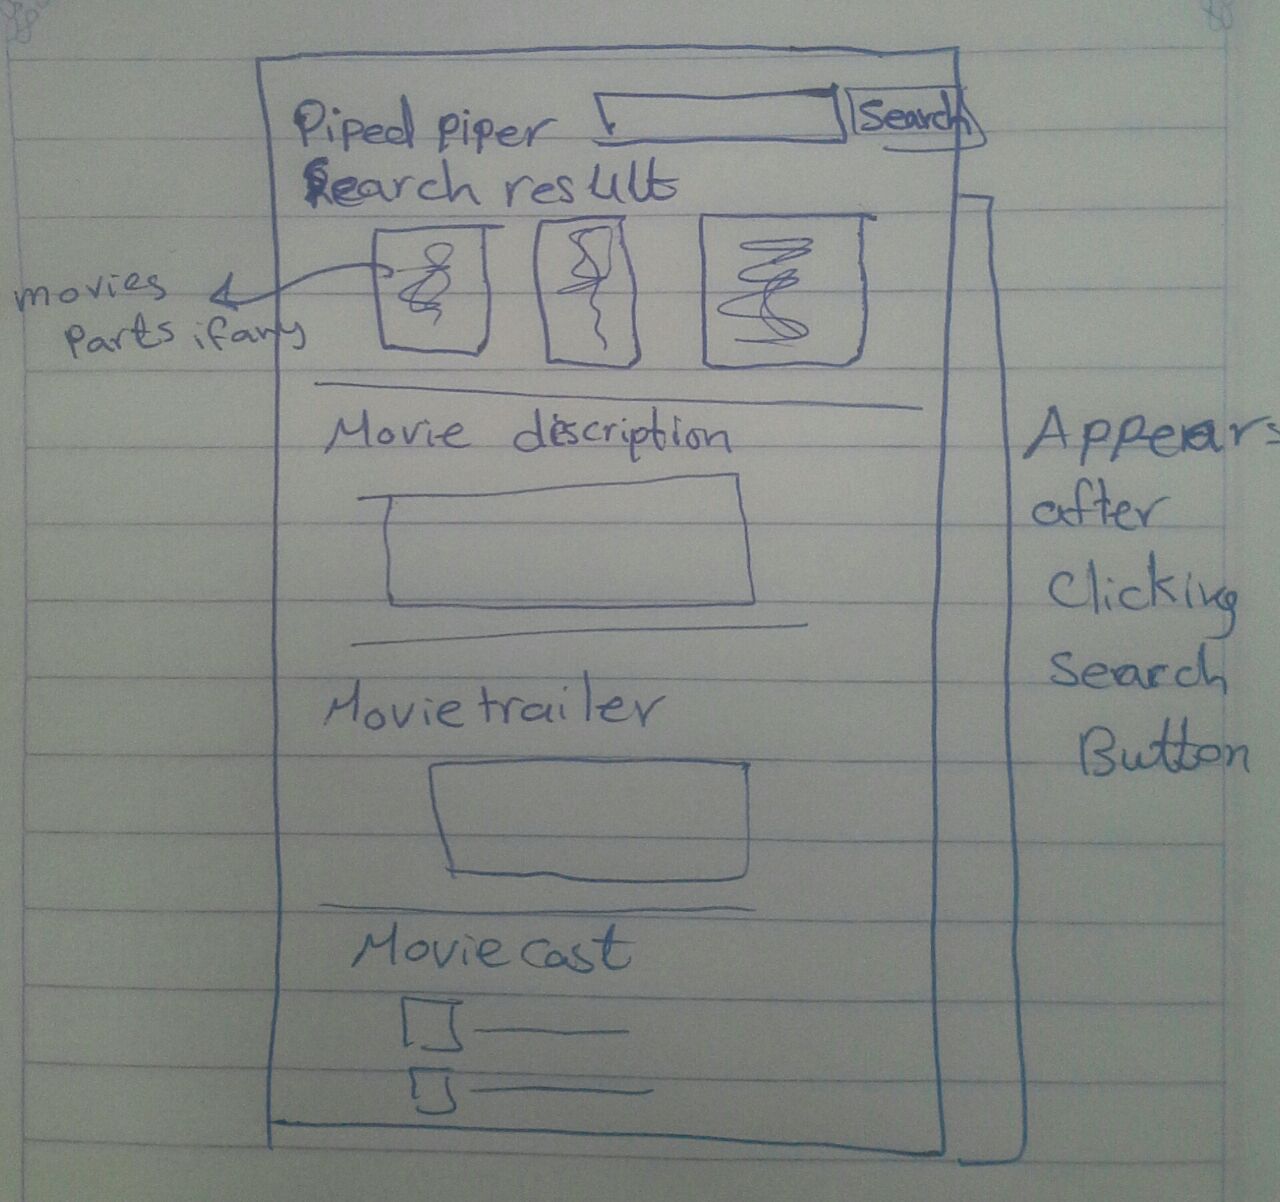 Piped piper
Search
Search result
movies
parts if any
Movie description
Movie trailer
Movie cast
Appears
after
Clicking
Search
Button